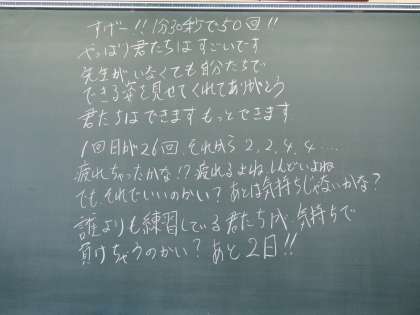 すげー!! 1分30秒で50回!!
やっぱり君たちはすごいです
先生がいなくても自分たちで
できる姿を見せてくれてありがとう
君たちはできます もっとできます
1回目が26回、それから 2, 2, 4, 4 ....
疲れちゃったかな!? 疲れるよね、しんどいよね
でも、それでいいのかい? あとは気持ちじゃないかな?
誰よりも練習している君たちが、気持ちで
負けちゃうのかい? あと2日!!